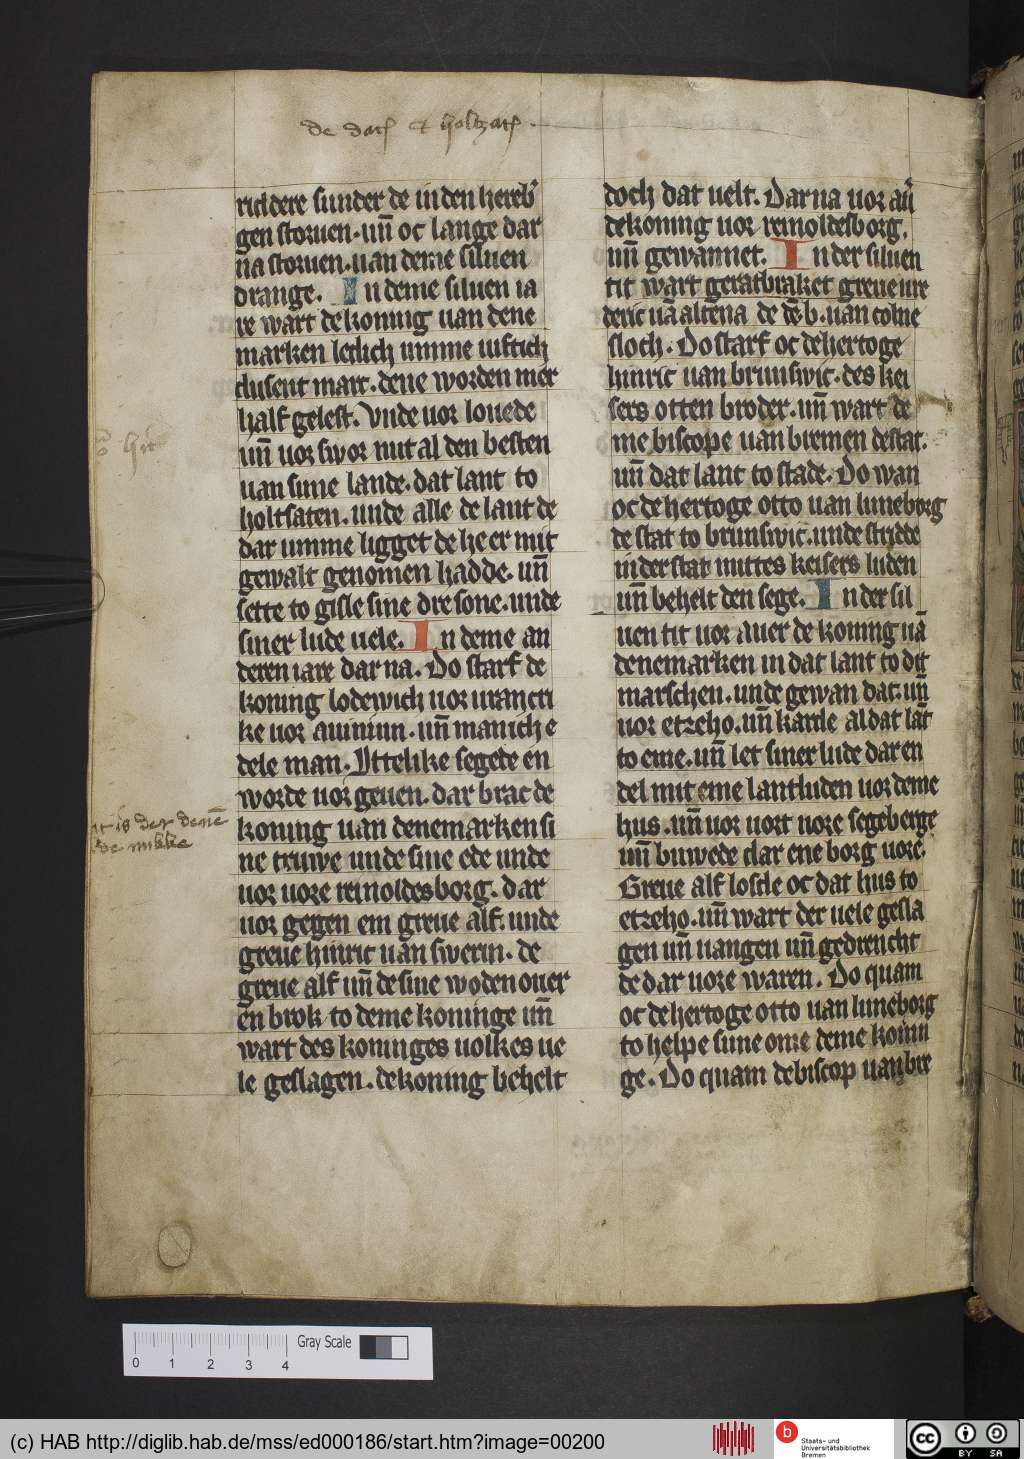 de dat & holtzat
riddere sunder de in den hereb
gen storuen. un̄ oc lange dar
na storuen. uan deme siluen
drange. In deme siluen ia
re wart de koning uan dene
marken ledich umme uiftich
dusent marc. dene worden mer
half gelest. Vnde uor louede
un̄ uor swor mit al den besten
uan sime lande. dat lant to
holtsaten. unde alle de lant de
dar umme ligget de he er mit
gewalt genomen hadde. un̄
sette to gisle sine dre sone. unde
siner lude uele. In deme an
deren iare dar na. Do starf de
koning lodewich uor urancri
ke uor auiniun. un̄ manich e
dele man. Ittelike segede en
worde uor geuen. dar brac de
koning uan denemarken si
ne truwe unde sine ede unde
uor uore reinoldesborg. dar
uor gegen em greue alf. unde
greue hinric uan swerin. de
greue alf un̄ de sine woden ouer
en brok to deme koninge un̄
wart des koninges uolkes ue
le geslagen. de koning behelt
it is der denē
de nikke
doch dat uelt. Dar na uor au̅
de koning uor reinoldesborg.
un̄ gewannet. In der siluen
tit wart geratbraket greue ure
deric uā altena de dē b. uan colne
sloch. Do starf oc de hertoge
hinric uan brunswic. des kei
sers otten broder. un̄ wart de
me biscope uan bremen de stat.
un̄ dat lant to stade. Do wan
oc de hertoge otto uan luneborg
de stat to brunswic. unde stridde
in der stat mittes keisers luden
un̄ behelt den sege. In der sil
uen tit uor auer de koning uā
denemarken in dat lant to dit
marschen. unde gewan dat. un̄
uor etzeho. un̄ karde al dat lāt
to eme. un̄ let siner lude dar en
del mit eme lantluden uor deme
hus. un̄ uor uort uore segeberge
un̄ buwede dar ene borg uore.
Greue alf losde oc dat hus to
etzeho. un̄ wart der uele gesla
gen un̄ uangen un̄ gedrencht
de dar uore waren. Do quam
oc de hertoge otto uan luneborg
to helpe sime ome deme konin
ge. Do quam de biscop uan bre
0 1 2 3 4
Gray Scale
(c) HAB http://diglib.hab.de/mss/ed000186/start.htm?image=00200
b
Staats- und
Universitätsbibliothek
Bremen
cc
BY SA